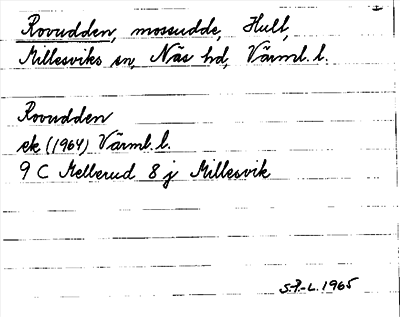 Rovudden, mossudde, Hult,
Millesviks sn, Näs hd, Värml. l.
Rovudden
ek (1964) Värml. l.
9 C Mellerud 8 j Millesvik
S.P.-L. 1965